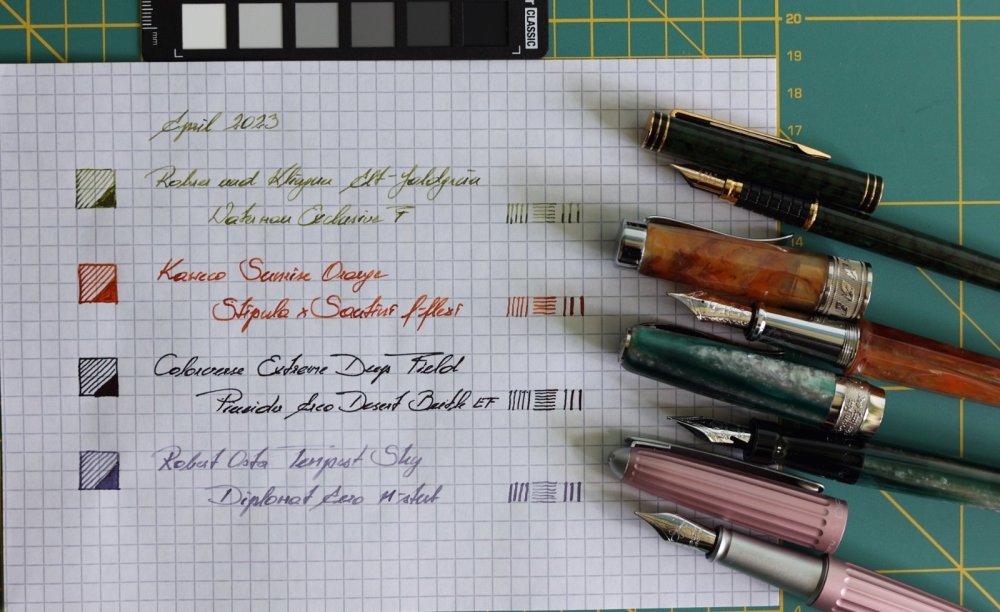 mm
CLASSIC
20
19
18
17
14
April 2023
Rohrer und Klingner Alt-Goldgrün
Waterman Exclusive F
Kaweco Sunrise Orange
Stipula x Santini f-flexi
Colorverse Extreme Deep Field
Pineider Arco Desert EF
Robert Oster Tempest Sky
Diplomat Aero M-stub